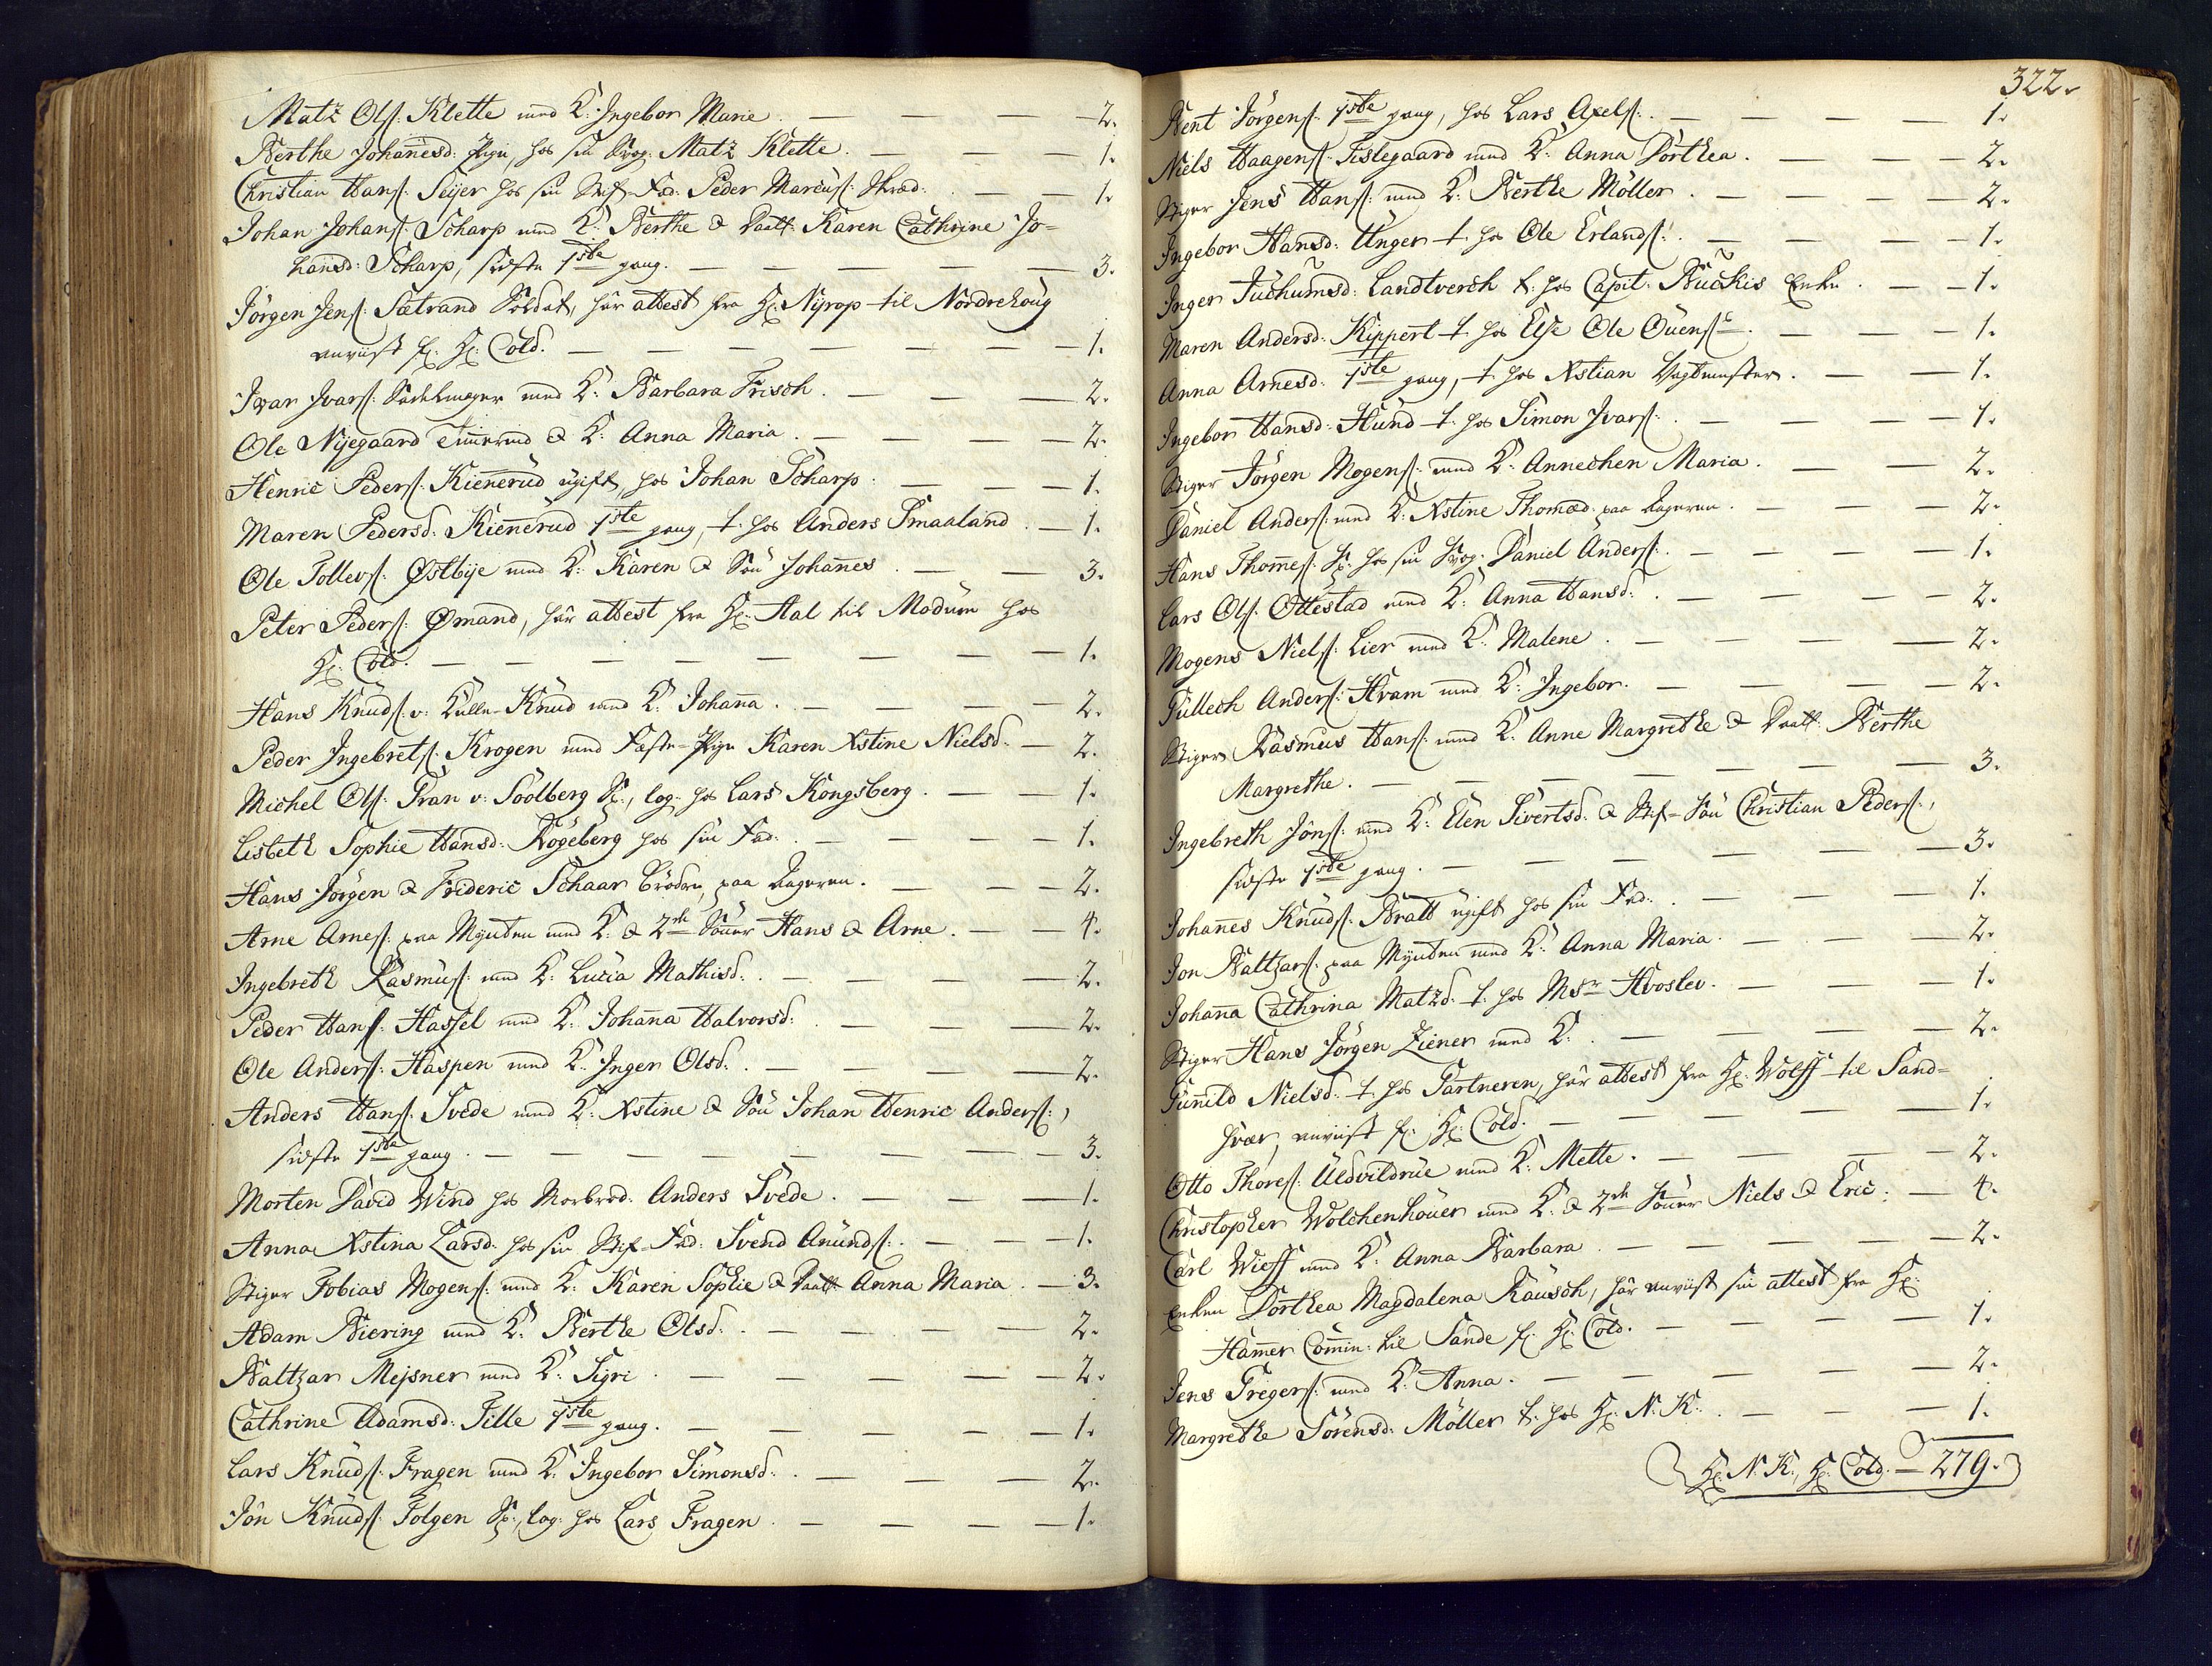 Matz Ols: Klette med K: Ingebor Marie. — — — — 2.
Berthe Johañesd: Pige, hos sin Svog: Matz Klette. — — — 1.
Christian Hans: Seijer hos sin Stif-Fad: Peder Marcus: Skræd: — — 1.
Johan Johans: Scharp med K: Berthe & Datt: Karen Cathrine Jo=
hañsd: Scharp, sidste 1ste gang. — — — — — 3.
Jörgen Jens: Sætrand Soldat, har attest fra Hr: Nyrop til Nordrehoug
anviist fr: Hr: Cold. — — — — — — 1.
Iwar Ivars: Sadelmager med K: Barbara Frisch. — — — 2.
Ole Nyegaard Tim̃ermd & K: Anna Maria. — — — — 2.
Henric Peders: Kieñerud ugift, hos Johan Scharp. — — — 1.
Maren Pedersd: Kieñerud 1ste gang, t. hos Anders Smaaland. — 1.
Ole Tollevs: Østbÿe med K: Karen & Sön Johañes. — — 3.
Peter Peders: Ømand, har attest fra Hr: Aal til Modum hos
Hr: Cold. — — — — — — — 1.
Hans Knuds: v: Kulle-Knud med K: Johaña. — — — — 2.
Peder Ingebrets: Krogen med Fæste-Pige Karen Xstine Nielsd: — 2.
Michel Ols: Gran v: Soolberg S:, log: hos Lars Kongsberg. — — 1.
Lisbeth Sophie Hansd: Kogeberg hos sin Fad: — — — — 1.
Hans Jörgen & Frideric Schaar Brödre, paa Lageren. — — — 2.
Arne Arnes: paa Mynten med K: & 2de Sönner Hans & Arne. — — 4.
Ingebreth Rasmus: med K: Lucia Mathisd: — — — — 2.
Peder Hans: Hassel med K: Johaña Halvorsd: — — — 2.
Ole Anders: Haspen med K: Inger Olsd: — — — — 2.
Anders Hans: Svede med K: Xstine & Sön Johan Henric Anders:,
sidste 1ste gang. — — — — — — — 3.
Morten David Wind hos Morbrod: Anders Svede. — — — 1.
Anna Xstina Larsd: hos sin Stif-Fad: Svend Anunds: — — 1.
Stiger Tobias Mogens: med K: Karen Sophie & Datt: Anna Maria. — 3.
Adam Biering med K: Berthe Olsd: — — — — 2.
Baltzar Mejsner med K: Sigri. — — — — — 2.
Cathrine Adamsd: Tille 1ste gang. — — — — — 1.
Lars Knuds: Fragen med K: Ingebor Simonsd: — — — 2.
Jön Knuds: Folgen S:, log: hos Lars Fragen. — — — — 1.
322.
Bent Jörgens: 1ste gang, hos Lars Axels: — — — — 1.
Niels Haagens: Fislegaard med K: Anna Dorthea. — — — 2.
Stiger Jens Hans: med K: Berthe Möller. — — — — 2.
Ingebor Hansd: Unger t. hos Ole Erlands: — — — — 1.
Inger Juchumsd: Landtverch t: hos Capit: Buckis Enke. — — 1.
Maren Andersd: Kippert t. hos Else Ole Ouens: — — — 1.
Anna Arnesd: 1ste gang, t. hos Xstian Vagtmester. — — 1.
Ingebor Hansd: Hund t. hos Simon Ivars: — — — 1.
Stiger Jörgen Mogens: med K: Annechen Maria. — — — 2.
Daniel Anders: med K: Xstine Thomæd: paa Lageren. — — — 2.
Hans Thom̃es: S: hos sin Svog: Daniel Anders: — — — — 1.
Lars Ols: Ottestad med K: Anna Hansd: — — — — 2.
Mogens Niels: Lier med K: Malene. — — — — — 2.
Gullech Anders: Hvam med K: Ingebor. — — — — 2.
Stiger Rasmus Hans: med K: Anne Margrethe & Datt: Berthe
Margrethe. — — — — — — — 3.
Ingebreth Jöns: med K: Elen Sivertsd: & Stif-Sön Christian Peders:,
sidste 1ste gang. — — — — — — 3.
Johañes Knuds: Bratt ugift hos sin Fad: — — — — 1.
Jon Baltzars: paa Mynten med K: Anna Maria. — — — 2.
Johaña Cathrina Matzd: t. hos Msr Hvoslev. — — — 1.
Stiger Hans Jörgen Ziener med K: — — — — 2.
Guñild Nielsd: t. hos Gartneren, har attest fra Hr: Wolff til Sand=
hver, anviist fr: Hr: Cold. — — — — — 1.
Otto Thores: Uldvildrue med K: Mette. — — — — 2.
Christopher Wolchenhouer med K: & 2de Sönner Niels & Eric: — 4.
Carl Wieff med K: Anna Barbara. — — — — — 2.
Enken Dorthea Magdalena Rausch, har anviist sin attest fra Hr:
Ham̃er Com̃in: til Sande fr: Hr: Cold. — — — — 1.
Jens Gregers: med K: Anna. — — — — — 2.
Margrethe Sörensd: Möller t. hos Hr: N. K: — — — — 1.
Hr: N. K:, Hr: Cold. — 279.